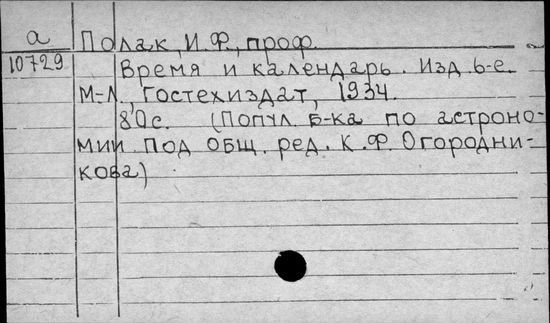 а Полак, И.Ф., проф.
10729 Время и календарь. Изд. 6-е.
М-Л., Гостехиздат, 1934.
80с. (Попул. б-ка по астроно-
мии под общ. ред. К.Ф. Огородни-
кова)